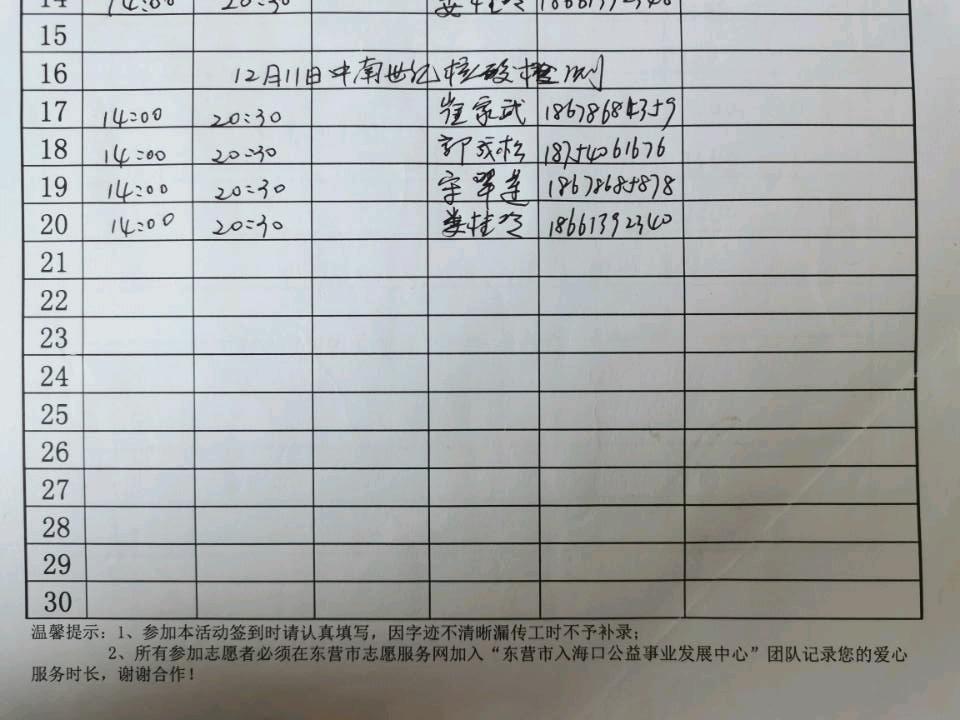 14 14:00 20:30 娄桂冷 18661392340
15
16 12月11日中南世纪核酸检测
17 14:00 20:30 崔家武 18678684359
18 14:00 20:30 郭成松 18754061676
19 14:00 20:30 宋翠莲 18678685878
20 14:00 20:30 娄桂冷 18661392340
21
22
23
24
25
26
27
28
29
30
温馨提示：1、参加本活动签到时请认真填写，因字迹不清晰漏传工时不予补录；
2、所有参加志愿者必须在东营市志愿服务网加入“东营市入海口公益事业发展中心”团队记录您的爱心
服务时长，谢谢合作！